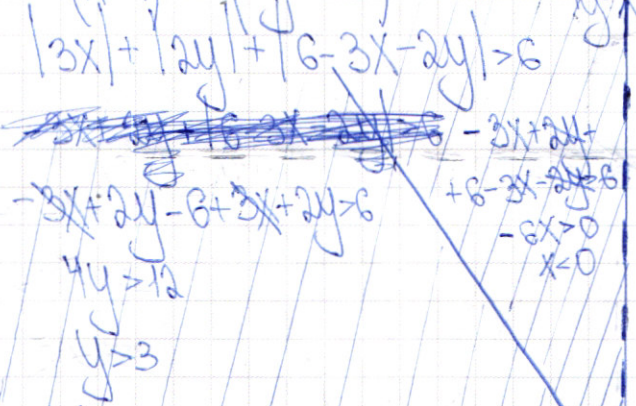 |3x|+|2y|+|6-3x-2y|>6
-3x+2y+
+6-3x-2y>6
-6x>0
x<0
-3x+2y-6+3x+2y>6
4y>12
y>3